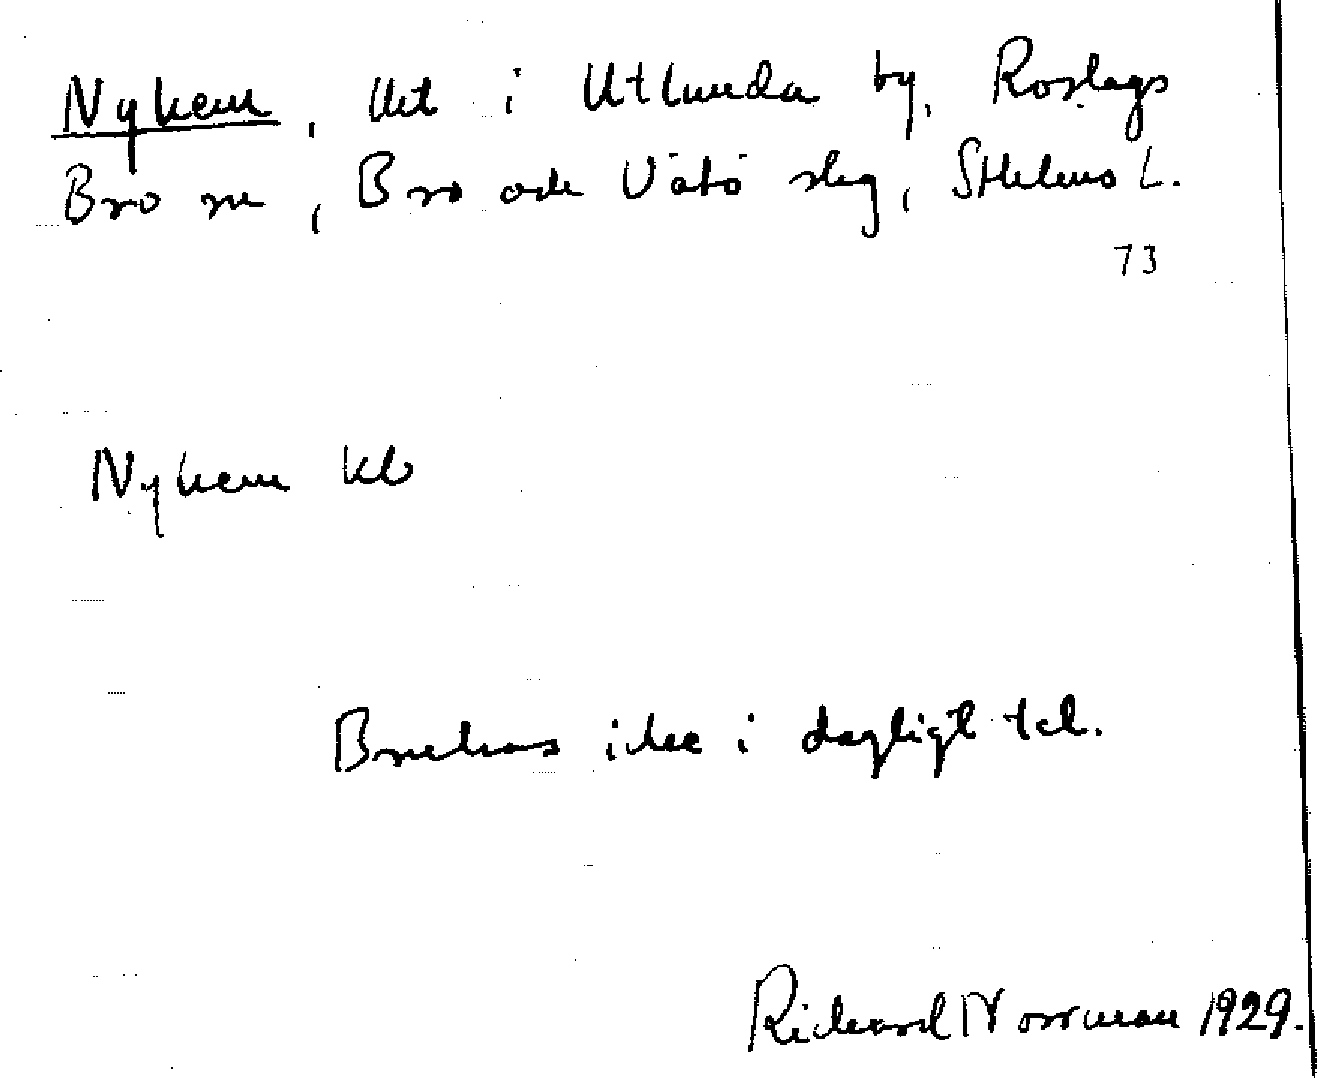 Nyhem, lht i Utlunda by, Roslags
Bro sn, Bro och Vätö slg, Sthlms L.
73
Nyhem kb
Brukas icke i dagligt tal.
Richard Norrman 1929.